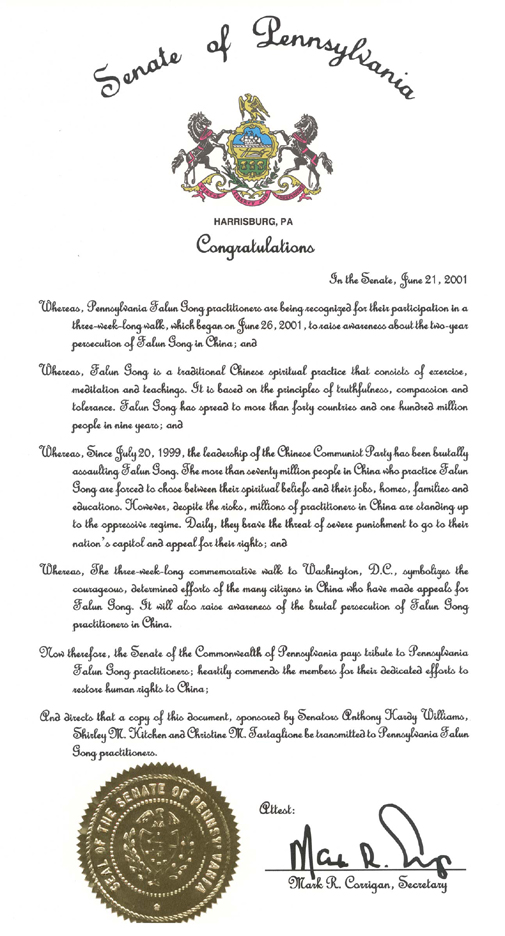 Senate of Pennsylvania
HARRISBURG, PA
Congratulations
In the Senate, June 21, 2001
Whereas, Pennsylvania Falun Gong practitioners are being recognized for their participation in a
three-week-long walk, which began on June 26, 2001, to raise awareness about the two-year
persecution of Falun Gong in China; and
Whereas, Falun Gong is a traditional Chinese spiritual practice that consists of exercise,
meditation and teachings. It is based on the principles of truthfulness, compassion and
tolerance. Falun Gong has spread to more than forty countries and one hundred million
people in nine years; and
Whereas, Since July 20, 1999, the leadership of the Chinese Communist Party has been brutally
assaulting Falun Gong. The more than seventy million people in China who practice Falun
Gong are forced to chose between their spiritual beliefs and their jobs, homes, families and
educations. However, despite the risks, millions of practitioners in China are standing up
to the oppressive regime. Daily, they brave the threat of severe punishment to go to their
nation's capitol and appeal for their rights; and
Whereas, The three-week-long commemorative walk to Washington, D.C., symbolizes the
courageous, determined efforts of the many citizens in China who have made appeals for
Falun Gong. It will also raise awareness of the brutal persecution of Falun Gong
practitioners in China.
Now therefore, the Senate of the Commonwealth of Pennsylvania pays tribute to Pennsylvania
Falun Gong practitioners; heartily commends the members for their dedicated efforts to
restore human rights to China;
And directs that a copy of this document, sponsored by Senators Anthony Hardy Williams,
Shirley M. Kitchen and Christine M. Tartaglione be transmitted to Pennsylvania Falun
Gong practitioners.
SEAL OF THE SENATE OF PENNSYLVANIA
Attest:
Mark R. Corrigan, Secretary